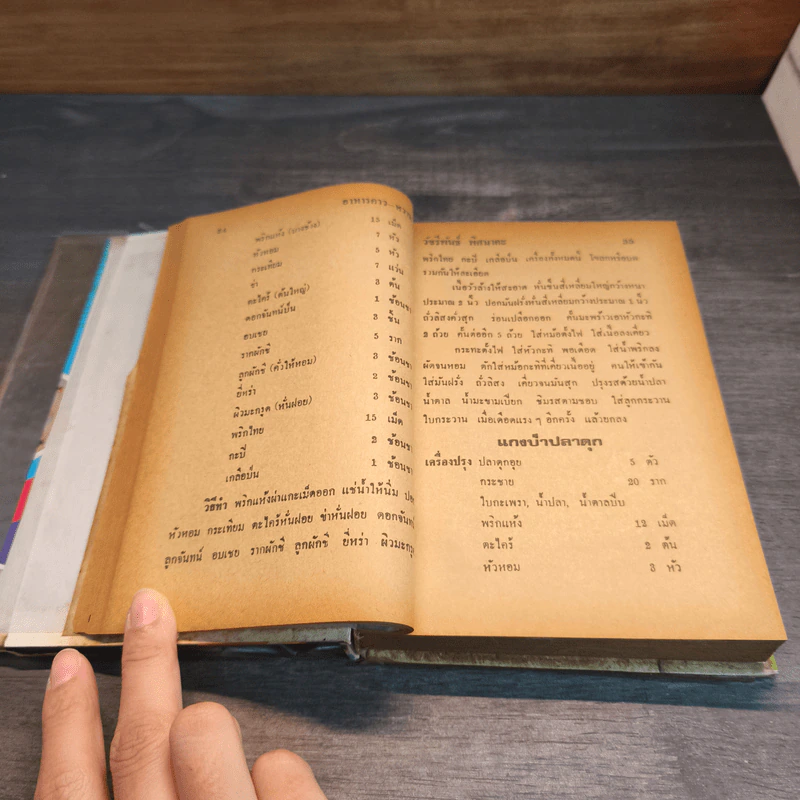 ๕๔ อาหารคาว-หวาน
พริกแห้ง (บางช้าง) 15 เม็ด
หัวหอม 7 หัว
กระเทียม 5 หัว
ข่า 7 แว่น
ตะไคร้ (ต้นใหญ่) 3 ต้น
ดอกจันทน์ป่น 1 ช้อนชา
อบเชย 3 ชิ้น
รากผักชี 5 ราก
ลูกผักชี (คั่วให้หอม) 3 ช้อนชา
ยี่หร่า 2 ช้อนชา
ผิวมะกรูด (หั่นฝอย) 3 ช้อนชา
พริกไทย 15 เม็ด
กะปิ 2 ช้อนชา
เกลือป่น 1 ช้อนชา
วิธีทำ พริกแห้งผ่าแกะเม็ดออก แช่น้ำให้นิ่ม
หัวหอม กระเทียม ตะไคร้หั่นฝอย ข่าหั่นฝอย ดอกจันทน์
ลูกจันทน์ อบเชย รากผักชี ลูกผักชี ยี่หร่า ผิวมะกรูด
วัชรีพันธุ์ 35
พริกไทย กะปิ เกลือป่น เครื่องทั้งหมดนี้ โขลกพร้อมผสม
รวมกันให้ละเอียด
เนื้อวัวล้างให้สะอาด หั่นชิ้นสี่เหลี่ยมใหญ่กว้างหนา
ประมาณ 2 นิ้ว ปอกมันฝรั่งหั่นสี่เหลี่ยมกว้างประมาณ 1 นิ้ว
ถั่วลิสงคั่วสุก ร่อนเปลือกออก คั้นมะพร้าวเอาหัวกะทิ
2 ถ้วย คั้นต่ออีก 5 ถ้วย ใส่หม้อตั้งไฟ ใส่เนื้อลงเคี่ยว
กระทะตั้งไฟ ใส่หัวกะทิ พอเดือด ใส่น้ำพริกลง
ผัดจนหอม ตักใส่หม้อกะทิที่เคี่ยวเนื้ออยู่ คนให้เข้ากัน
ใส่มันฝรั่ง ถั่วลิสง เคี่ยวจนมันสุก ปรุงรสด้วยน้ำปลา
น้ำตาล น้ำมะขามเปียก ชิมรสตามชอบ ใส่ลูกกระวาน
ใบกระวาน เมื่อเดือดแรง ๆ อีกครั้ง แล้วยกลง
แกงป่าปลาดุก
เครื่องปรุง ปลาดุกอุย 5 ตัว
กระชาย 20 ราก
ใบกะเพรา, น้ำปลา, น้ำตาลปีบ
พริกแห้ง 12 เม็ด
ตะไคร้ 2 ต้น
หัวหอม 3 หัว